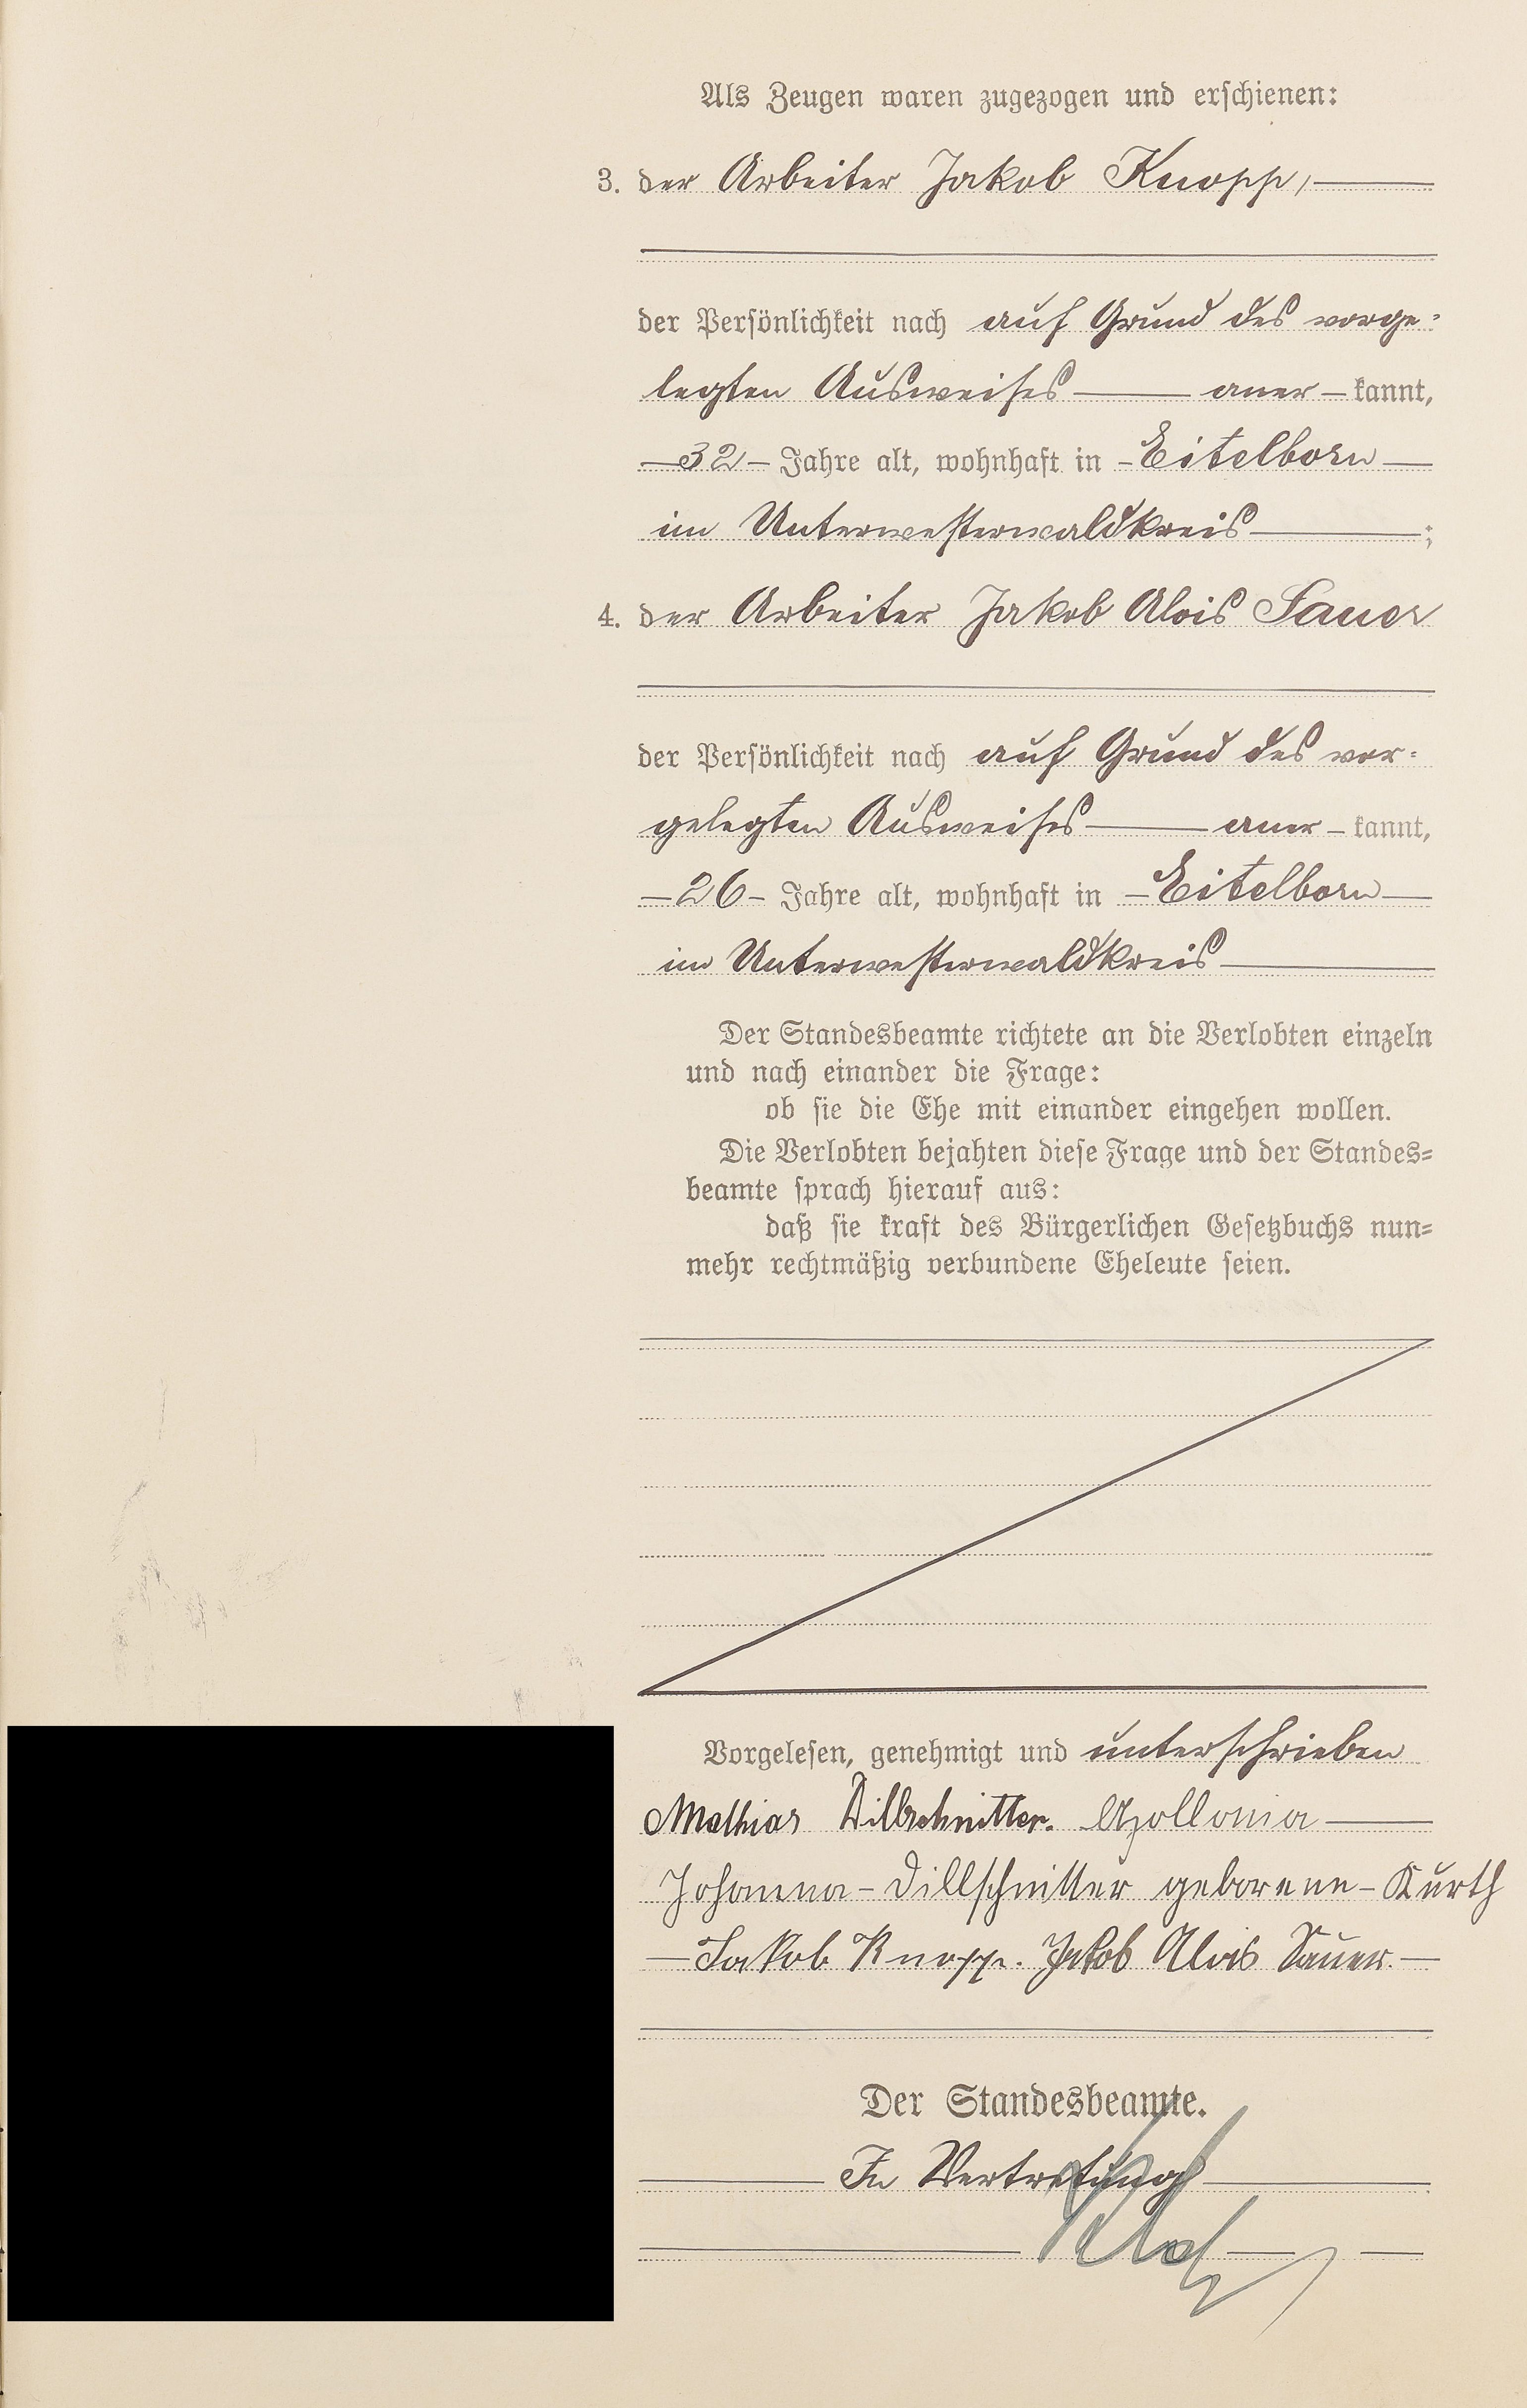 Als Zeugen waren zugezogen und erschienen:
3. der Arbeiter Jakob Knopp,
der Persönlichkeit nach auf Grund des vorge-
legten Ausweises aner-kannt,
32 Jahre alt, wohnhaft in Eitelborn
im Unterwesterwaldkreis;
4. der Arbeiter Jakob Alois Sauer
der Persönlichkeit nach auf Grund des vor-
gelegten Ausweises aner-kannt,
26 Jahre alt, wohnhaft in Eitelborn
im Unterwesterwaldkreis
Der Standesbeamte richtete an die Verlobten einzeln
und nach einander die Frage:
ob sie die Ehe mit einander eingehen wollen.
Die Verlobten bejahten diese Frage und der Standes-
beamte sprach hierauf aus:
daß sie kraft des Bürgerlichen Gesetzbuchs nun-
mehr rechtmäßig verbundene Eheleute seien.
Vorgelesen, genehmigt und unterschrieben
Mathias Dillschnitter. Apollonia
Johanna Dillschnitter geborene Kurth
Jakob Knopp. Jakob Alois Sauer.
Der Standesbeamte.
In Vertretung